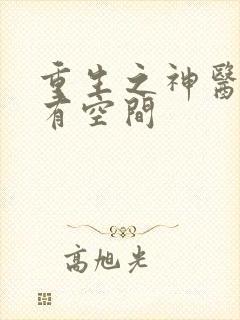 重生之神醫
有空間
高旭光